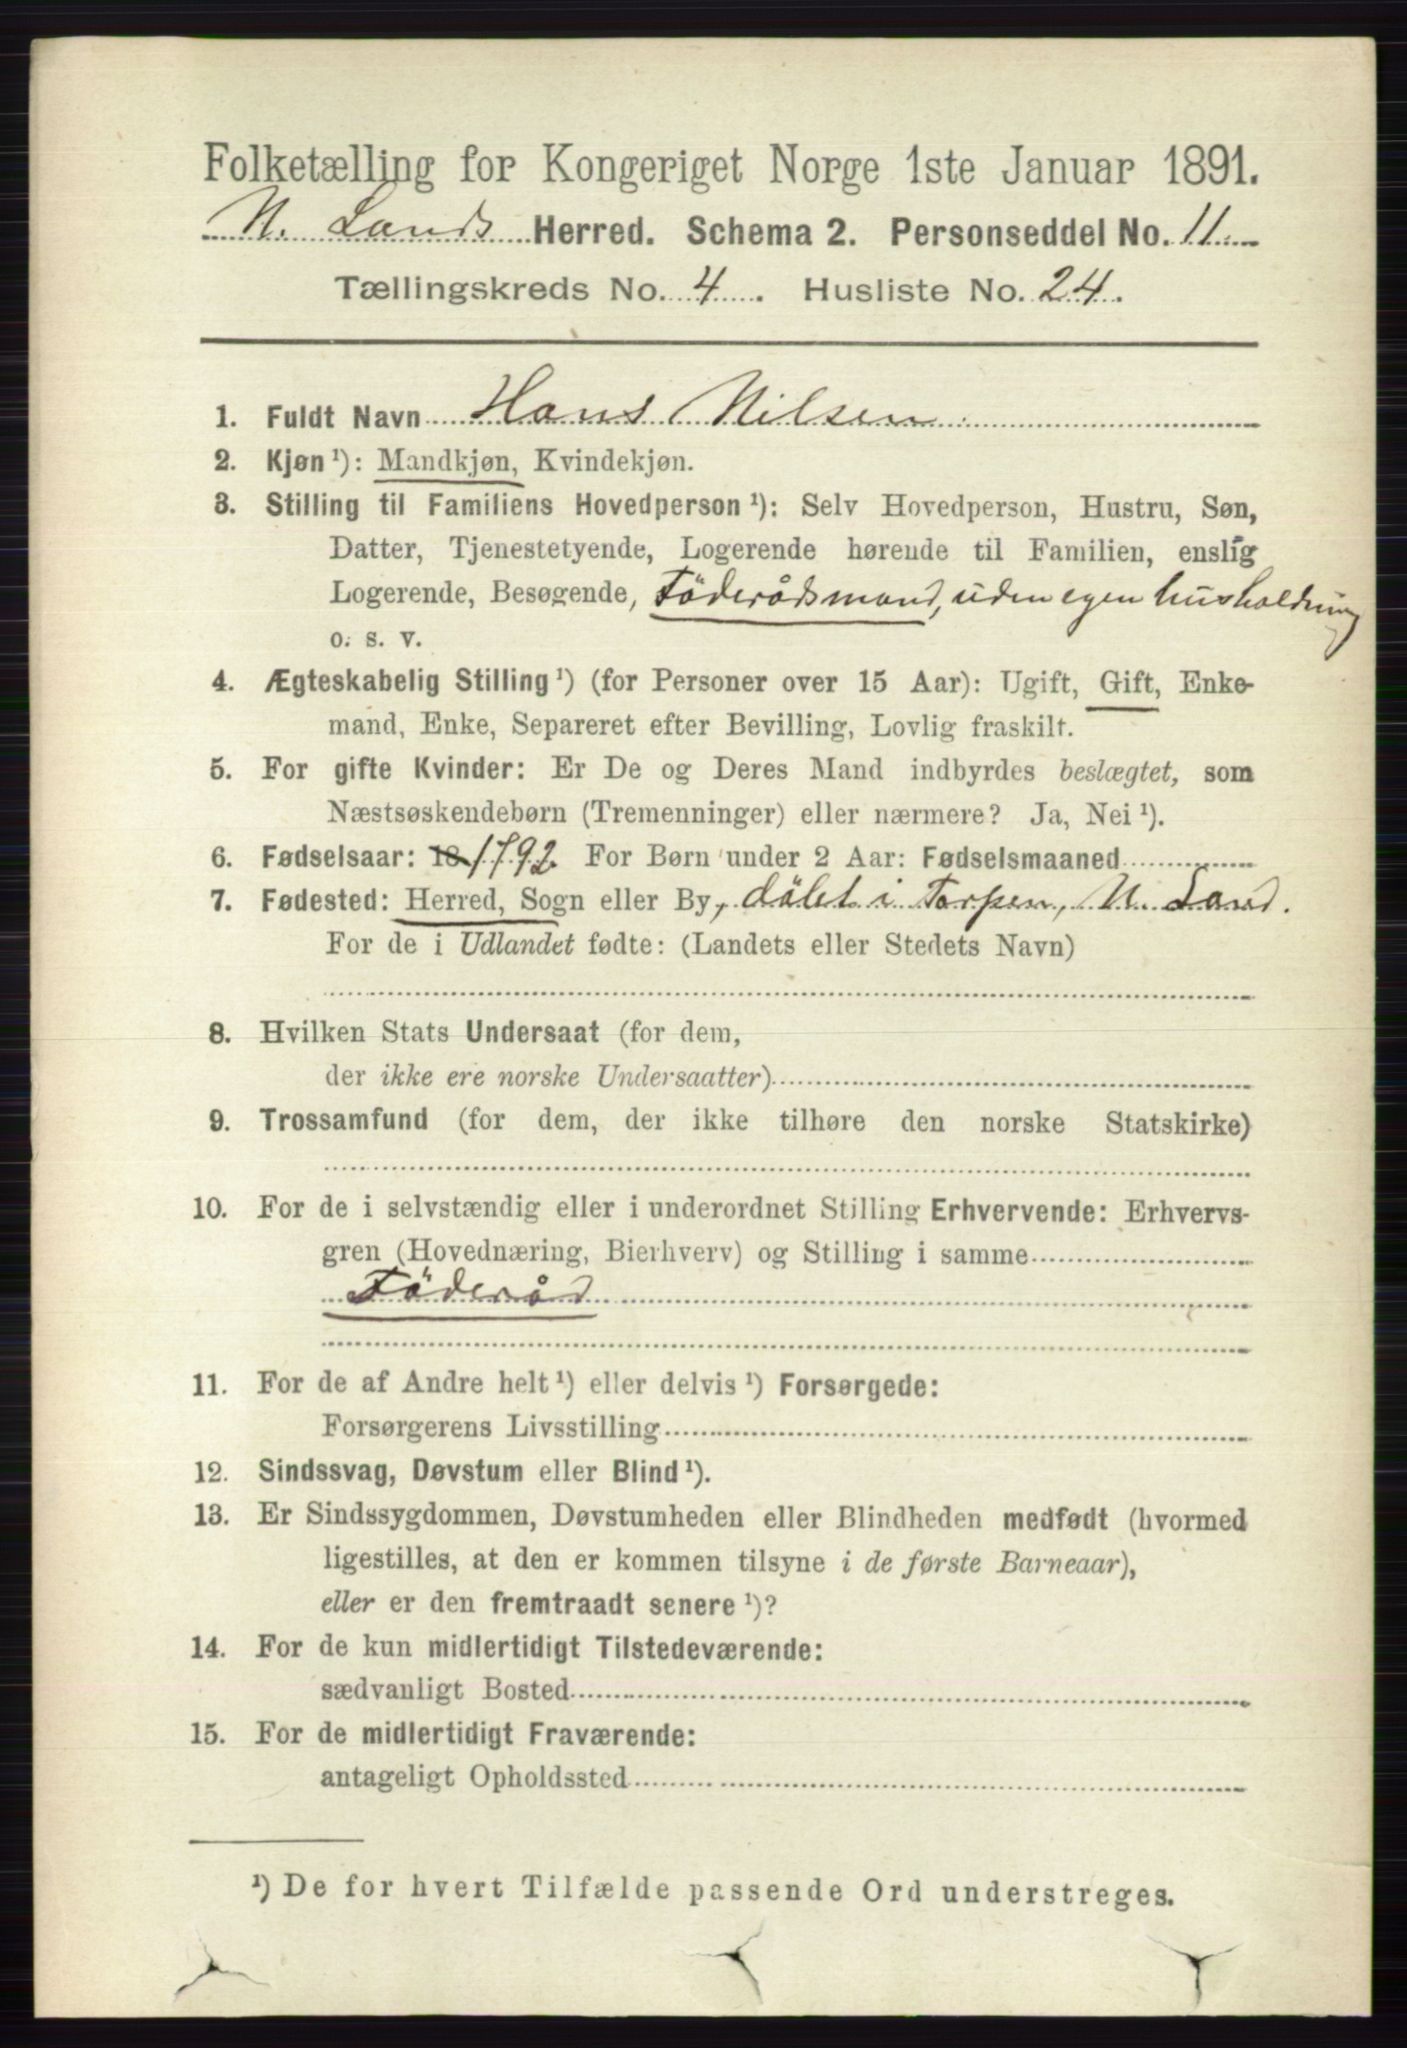 Folketælling for Kongeriget Norge 1ste Januar 1891.
N. Lands Herred. Schema 2. Personseddel No. 11
Tællingskreds No. 4. Husliste No. 24.
1. Fuldt Navn Hans Nilsen
2. Kjøn ¹): Mandkjøn, Kvindekjøn.
3. Stilling til Familiens Hovedperson ¹): Selv Hovedperson, Hustru, Søn,
Datter, Tjenestetyende, Logerende hørende til Familien, enslig
Logerende, Besøgende, Föderådsmand, uden egen husholdning
o. s. v.
4. Ægteskabelig Stilling ¹) (for Personer over 15 Aar): Ugift, Gift, Enke-
mand, Enke, Separeret efter Bevilling, Lovlig fraskilt.
5. For gifte Kvinder: Er De og Deres Mand indbyrdes beslægtet, som
Næstsøskendebørn (Tremenninger) eller nærmere? Ja, Nei ¹).
6. Fødselsaar: 18 1792 For Børn under 2 Aar: Fødselsmaaned
7. Fødested: Herred, Sogn eller By, dölet i Torpen, N. Land.
For de i Udlandet fødte: (Landets eller Stedets Navn)
8. Hvilken Stats Undersaat (for dem,
der ikke ere norske Undersaatter)
9. Trossamfund (for dem, der ikke tilhøre den norske Statskirke)
10. For de i selvstændig eller i underordnet Stilling Erhvervende: Erhvervs-
gren (Hovednæring, Bierhverv) og Stilling i samme
Föderåd
11. For de af Andre helt ¹) eller delvis ¹) Forsørgede:
Forsørgerens Livsstilling
12. Sindssvag, Døvstum eller Blind ¹).
13. Er Sindssygdommen, Døvstumheden eller Blindheden medfødt (hvormed
ligestilles, at den er kommen tilsyne i de første Barneaar),
eller er den fremtraadt senere ¹)?
14. For de kun midlertidigt Tilstedeværende:
sædvanligt Bosted
15. For de midlertidigt Fraværende:
antageligt Opholdssted
¹) De for hvert Tilfælde passende Ord understreges.